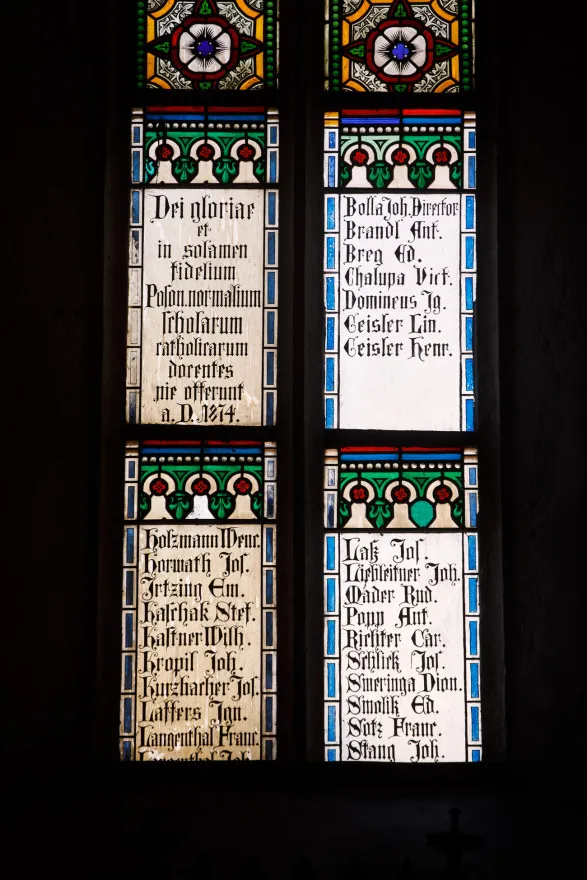 Dei gloriae
et
in solamen
fidelium
Poson.normalium
scholarum
catholicarum
docentes
pie offerunt
a. D. 1874.
Bolla Joh. Director
Brandl Ant.
Breg Ed.
Chalupa Vict.
Domineus Ig.
Geisler Lin.
Geisler Henr.
Holzmann Wenc.
Horwath Jos.
Irtzing Em.
Kaschak Stef.
Kastner Wilh.
Kropil Joh.
Kurzbacher Jos.
Laffers Ign.
Langenthal Franc.
Langenthal Joh.
Laß Jos.
Liebleitner Joh.
Mader Rud.
Popp Ant.
Richter Car.
Schlick Jos.
Smeringa Dion.
Smolik Ed.
Sotz Franc.
Stang Joh.